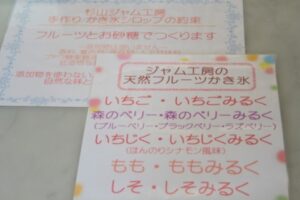 杉山ジャム工房
手作り・かき氷シロップの約束
フルーツとお砂糖でつくります
添加物を使わない
自然な味と
ジャム工房の
天然フルーツかき氷
いちご・いちごみるく
森のベリー・森のベリーみるく
(ブルーベリー・ブラックベリー・ラズベリー)
いちじく・いちじくみるく
(ほんのりシナモン風味)
もも・ももみるく
しそ・しそみるく